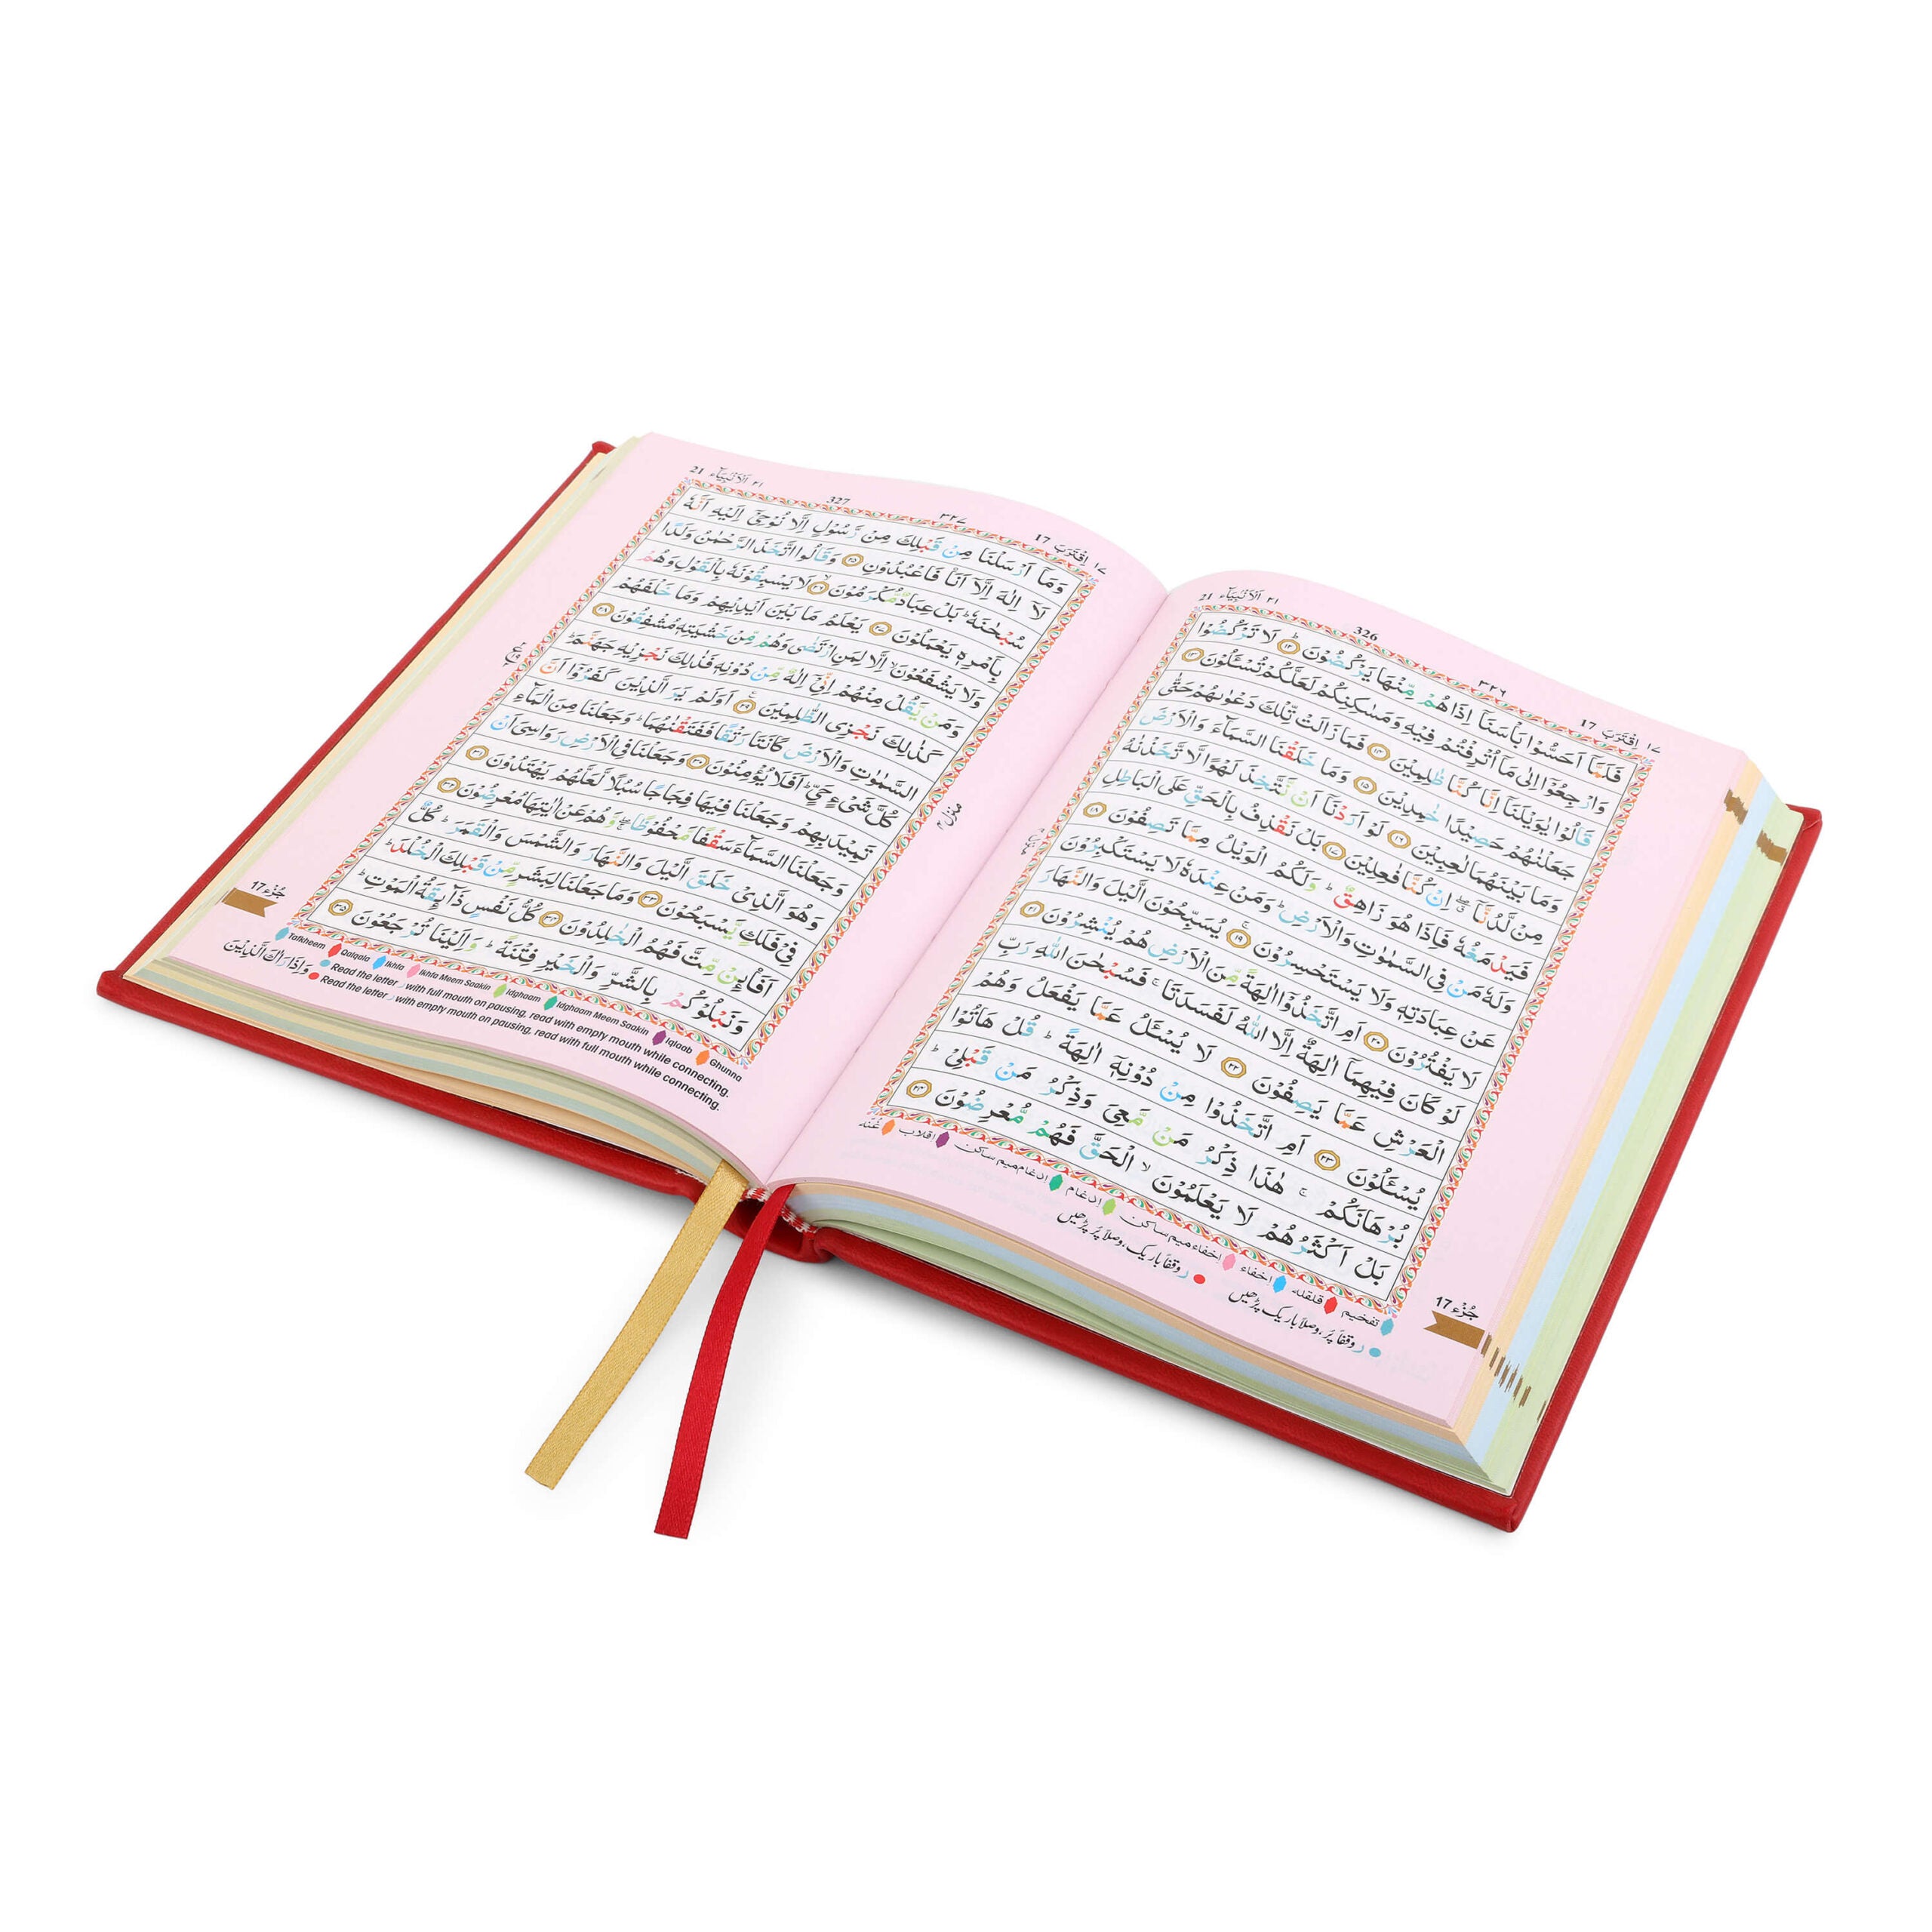 ١٧ اِقْتَرَبَ 17
٣٢٦
326
٢١ اَلْاَنْبِيَآء 21
فَلَمَّاۤ اَحَسُّوْا بَاْسَنَاۤ اِذَا هُمْ مِّنْهَا يَرْكُضُوْنَ ؕ‏﴿۱۲﴾ لَا تَرْكُضُوْا
وَارْجِعُوْۤا اِلٰى مَاۤ اُتْرِفْتُمْ فِيْهِ وَمَسٰكِنِكُمْ لَعَلَّكُمْ تُسْـَٔلُوْنَ ﴿۱۳﴾
قَالُوْا يٰوَيْلَنَاۤ اِنَّا كُنَّا ظٰلِمِيْنَ ﴿۱۴﴾ فَمَا زَالَتْ تِّلْكَ دَعْوٰىهُمْ حَتّٰى
جَعَلْنٰهُمْ حَصِيْدًا خٰمِدِيْنَ ﴿۱۵﴾ وَمَا خَلَقْنَا السَّمَآءَ وَالْاَرْضَ
وَمَا بَيْنَهُمَا لٰعِبِيْنَ ﴿۱۶﴾ لَوْ اَرَدْنَاۤ اَنْ نَّتَّخِذَ لَهْوًا لَّا تَّخَذْنٰهُ
مِنْ لَّدُنَّاۤ ۖۗ اِنْ كُنَّا فٰعِلِيْنَ ﴿۱۷﴾ بَلْ نَقْذِفُ بِالْحَقِّ عَلَى الْبَاطِلِ
فَيَدْمَغُهٗ فَاِذَا هُوَ زَاهِقٌ ؕ وَلَكُمُ الْوَيْلُ مِمَّا تَصِفُوْنَ ﴿۱۸﴾
وَلَهٗ مَنْ فِى السَّمٰوٰتِ وَالْاَرْضِ ؕ وَمَنْ عِنْدَهٗ لَا يَسْتَكْبِرُوْنَ
عَنْ عِبَادَتِهٖ وَلَا يَسْتَحْسِرُوْنَ ۚ‏﴿۱۹﴾ يُسَبِّحُوْنَ الَّيْلَ وَالنَّهَارَ
لَا يَفْتُرُوْنَ ﴿۲۰﴾ اَمِ اتَّخَذُوْۤا اٰلِهَةً مِّنَ الْاَرْضِ هُمْ يُنْشِرُوْنَ ﴿۲۱﴾
لَوْ كَانَ فِيْهِمَاۤ اٰلِهَةٌ اِلَّا اللّٰهُ لَفَسَدَتَا ۚ فَسُبْحٰنَ اللّٰهِ رَبِّ
الْعَرْشِ عَمَّا يَصِفُوْنَ ﴿۲۲﴾ لَا يُسْـَٔلُ عَمَّا يَفْعَلُ وَهُمْ
يُسْـَٔلُوْنَ ﴿۲۳﴾ اَمِ اتَّخَذُوْا مِنْ دُوْنِهٖۤ اٰلِهَةً ؕ قُلْ هَاتُوْا
بُرْهَانَكُمْ ۚ هٰذَا ذِكْرُ مَنْ مَّعِىَ وَذِكْرُ مَنْ قَبْلِىْ ؕ
بَلْ اَكْثَرُهُمْ لَا يَعْلَمُوْنَ ۙ الْحَقَّ فَهُمْ مُّعْرِضُوْنَ ﴿۲۴﴾
تفخیم قلقله اِخفاء اخفاء میم ساکن اِدغام ادغام میم ساکن اقلاب غُنّه
ر وقفاً پُر، وصلاً باریک پڑھیں ر وقفاً باریک، وصلاً پُر پڑھیں
جُزْء 17
١٧ اِقْتَرَبَ 17
٣٢٧
327
٢١ اَلْاَنْبِيَآء 21
وَمَاۤ اَرْسَلْنَا مِنْ قَبْلِكَ مِنْ رَّسُوْلٍ اِلَّا نُوْحِىْۤ اِلَيْهِ اَنَّهٗ
لَاۤ اِلٰهَ اِلَّاۤ اَنَا فَاعْبُدُوْنِ ﴿۲۵﴾ وَقَالُوا اتَّخَذَ الرَّحْمٰنُ وَلَدًا
سُبْحٰنَهٗ ؕ بَلْ عِبَادٌ مُّكْرَمُوْنَ ۙ‏﴿۲۶﴾ لَا يَسْبِقُوْنَهٗ بِالْقَوْلِ وَهُمْ
بِاَمْرِهٖ يَعْمَلُوْنَ ﴿۲۷﴾ يَعْلَمُ مَا بَيْنَ اَيْدِيْهِمْ وَمَا خَلْفَهُمْ
وَلَا يَشْفَعُوْنَ ۙ اِلَّا لِمَنِ ارْتَضٰى وَهُمْ مِّنْ خَشْيَتِهٖ مُشْفِقُوْنَ ﴿۲۸﴾
وَمَنْ يَّقُلْ مِنْهُمْ اِنِّىْۤ اِلٰهٌ مِّنْ دُوْنِهٖ فَذٰلِكَ نَجْزِيْهِ جَهَنَّمَ ؕ
كَذٰلِكَ نَجْزِى الظّٰلِمِيْنَ ﴿۲۹﴾ اَوَلَمْ يَرَ الَّذِيْنَ كَفَرُوْۤا اَنَّ
السَّمٰوٰتِ وَالْاَرْضَ كَانَتَا رَتْقًا فَفَتَقْنٰهُمَا ؕ وَجَعَلْنَا مِنَ الْمَآءِ
كُلَّ شَىْءٍ حَىٍّ ؕ اَفَلَا يُؤْمِنُوْنَ ﴿۳۰﴾ وَجَعَلْنَا فِى الْاَرْضِ رَوَاسِىَ اَنْ
تَمِيْدَ بِهِمْ وَجَعَلْنَا فِيْهَا فِجَاجًا سُبُلًا لَّعَلَّهُمْ يَهْتَدُوْنَ ﴿۳۱﴾
وَجَعَلْنَا السَّمَآءَ سَقْفًا مَّحْفُوْظًا ۖۚ وَّهُمْ عَنْ اٰيٰتِهَا مُعْرِضُوْنَ ﴿۳۲﴾
وَهُوَ الَّذِىْ خَلَقَ الَّيْلَ وَالنَّهَارَ وَالشَّمْسَ وَالْقَمَرَ ؕ كُلٌّ
فِىْ فَلَكٍ يَّسْبَحُوْنَ ﴿۳۳﴾ وَمَا جَعَلْنَا لِبَشَرٍ مِّنْ قَبْلِكَ الْخُلْدَ ؕ
اَفَا۟ئِنْ مِّتَّ فَهُمُ الْخٰلِدُوْنَ ﴿۳۴﴾ كُلُّ نَفْسٍ ذَآئِقَةُ الْمَوْتِ ؕ
وَنَبْلُوْكُمْ بِالشَّرِّ وَالْخَيْرِ فِتْنَةً ؕ وَاِلَيْنَا تُرْجَعُوْنَ ﴿۳۵﴾
منزل ۴
جُزْء 17
Tafkheem Qalqala Ikhfa Ikhfa Meem Saakin Idghaam Idghaam Meem Saakin Iqlaab Ghunna
Read the letter ر with full mouth on pausing, read with empty mouth while connecting.
Read the letter ر with empty mouth on pausing, read with full mouth while connecting.
وَاِذَا رَاٰكَ الَّذِيْنَ